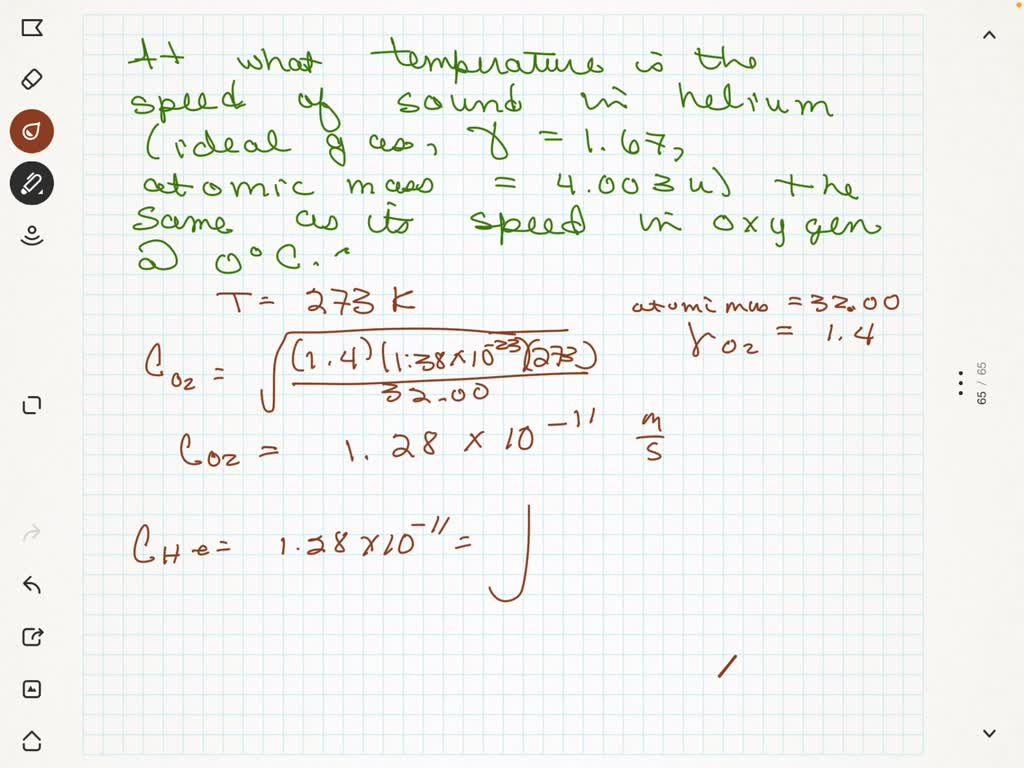 At what temperature is the
speed of sound in helium
(ideal gas, γ = 1.67,
atomic mass = 4.003 u) the
same as its speed in oxygen
@ 0°C.
T = 273 K
atomi mas = 32.00
γO2 = 1.4
CO2 = √((1.4)(1.38×10^-23)(273)/32.00)
CO2 = 1.28 × 10^-11 m/s
CHe = 1.28 ×10^-11 = √
65 / 65